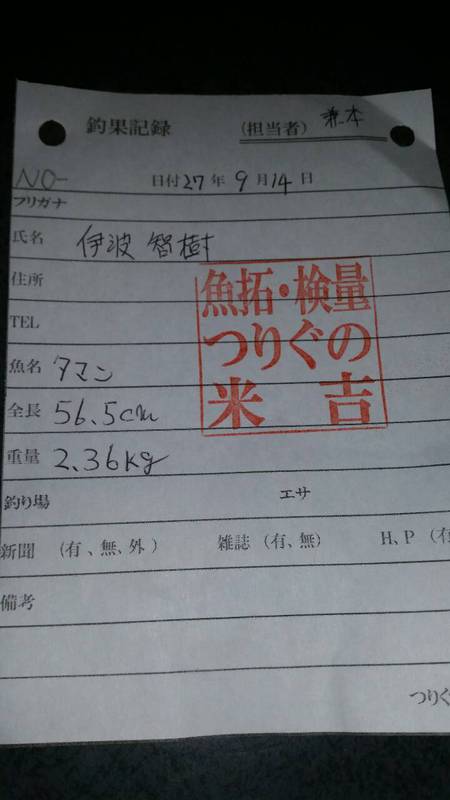 釣果記録 (担当者) 兼本
NO-
日付27年 9月14日
フリガナ
氏名 伊波 智樹
住所
魚拓・検量
つりぐの
米吉
TEL
魚名 タマン
全長 56.5cm
重量 2.36kg
釣り場 エサ
新聞 (有、無、外) 雑誌 (有、無) H、P (有
備考
つりぐ